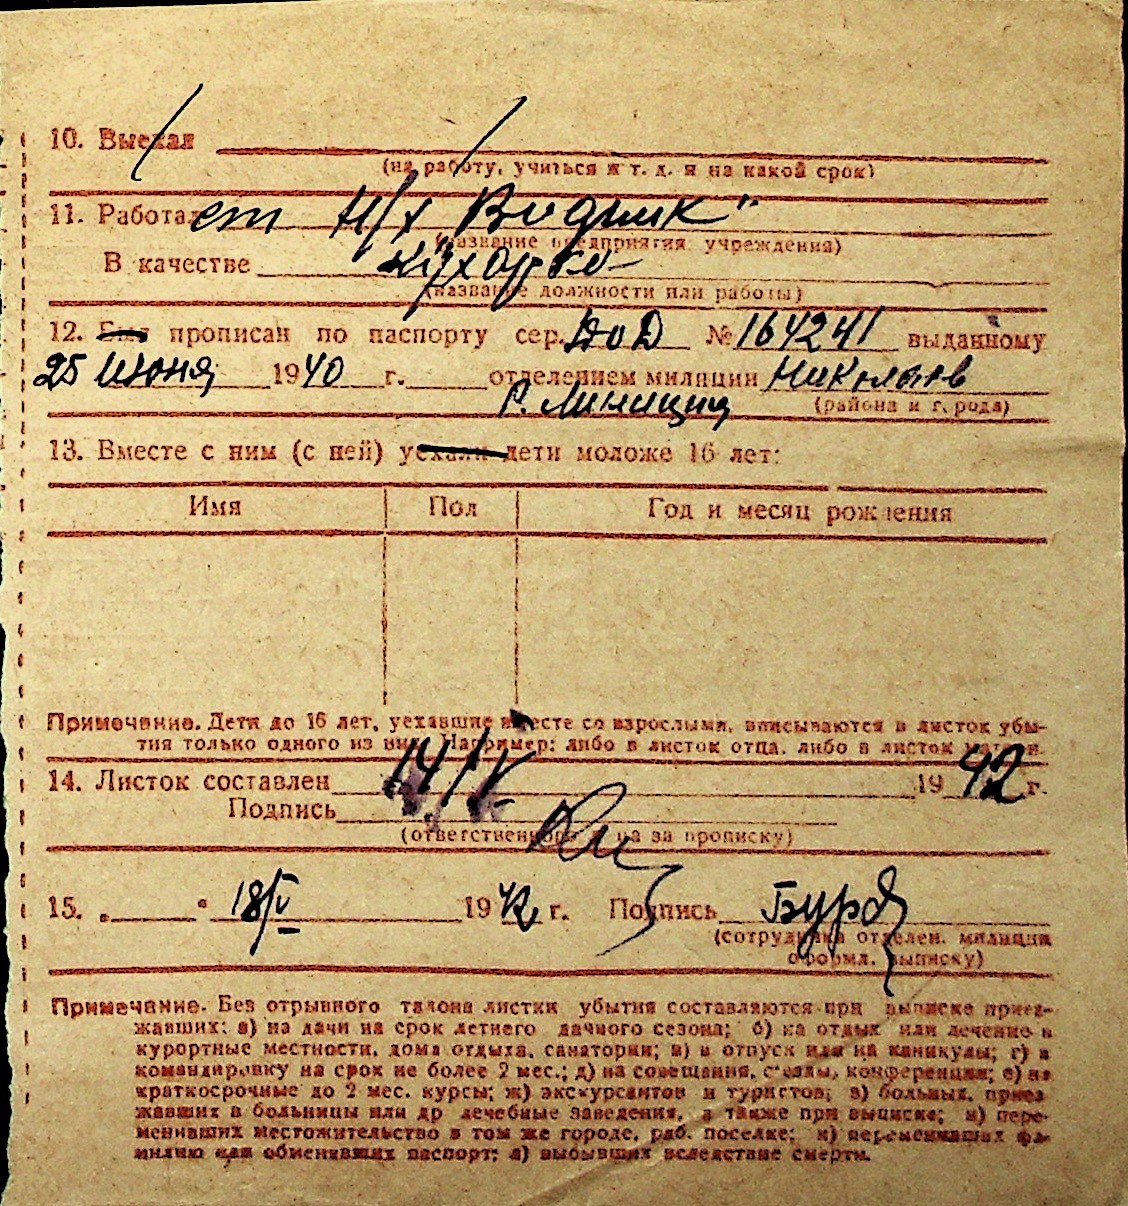 10. Выехал
(на работу, учиться и т. д. и на какой срок)
11. Работает н/х Водник"
(название предприятия учреждения)
В качестве
(название должности или работы)
12. Был прописан по паспорту сер. № 164241 выданному
25 июня 1940 г. отделением милиции Николаев
р. Милиции (района и города)
13. Вместе с ним (с ней) уехали дети моложе 16 лет:
Имя Пол Год и месяц рождения
Примечание. Дети до 16 лет, уехавшие вместе со взрослыми, вписываются в листок убы-
тия только одного из них. Например: либо в листок отца, либо в листок матери.
14. Листок составлен 14/V 1942 г.
Подпись
(ответственного лица за прописку)
15. „ " 18/V 1942 г. Подпись
(сотрудника отделен. милиции
оформл. выписку)
Примечание. Без отрывного талона листки убытия составляются при выписке приез-
жавших: а) на дачи на срок летнего дачного сезона; б) на отдых или лечение в
курортные местности, дома отдыха, санатории; в) в отпуск или на каникулы; г) в
командировку на срок не более 2 мес.; д) на совещания, съезды, конференции; е) на
краткосрочные до 2 мес. курсы; ж) экскурсантов и туристов; з) больных, приез
жавших в больницы или др лечебные заведения, а также при выписке; и) пере-
менивших местожительство в том же городе, раб. поселке; к) переменивших фа-
милию или обменивших паспорт; л) выбывших вследствие смерти.